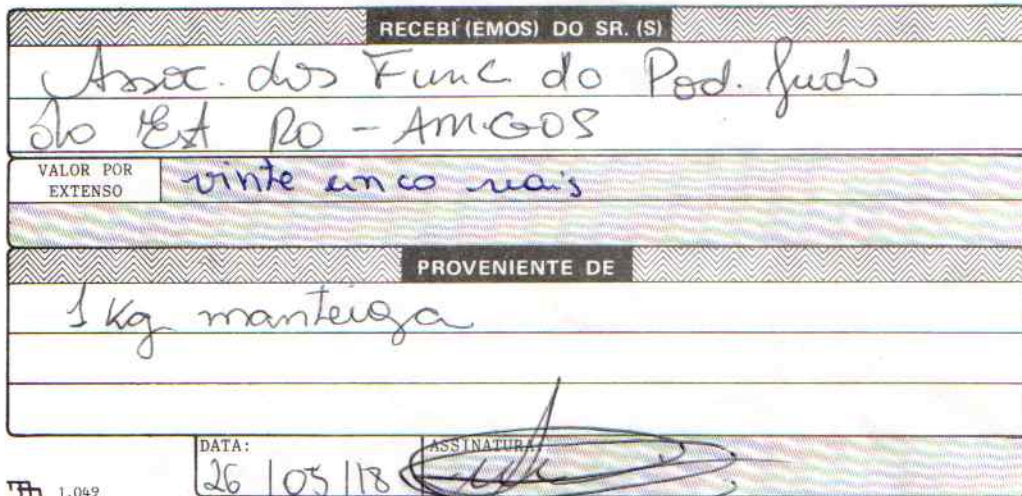 RECEBÍ (EMOS) DO SR. (S)
Assoc. dos Func do Pod. Judo
do Est RO - AMIGOS
VALOR POR EXTENSO vinte cinco reais
PROVENIENTE DE
1 Kg manteiga
DATA: ASSINATURA:
26 / 05 / 18
1.049